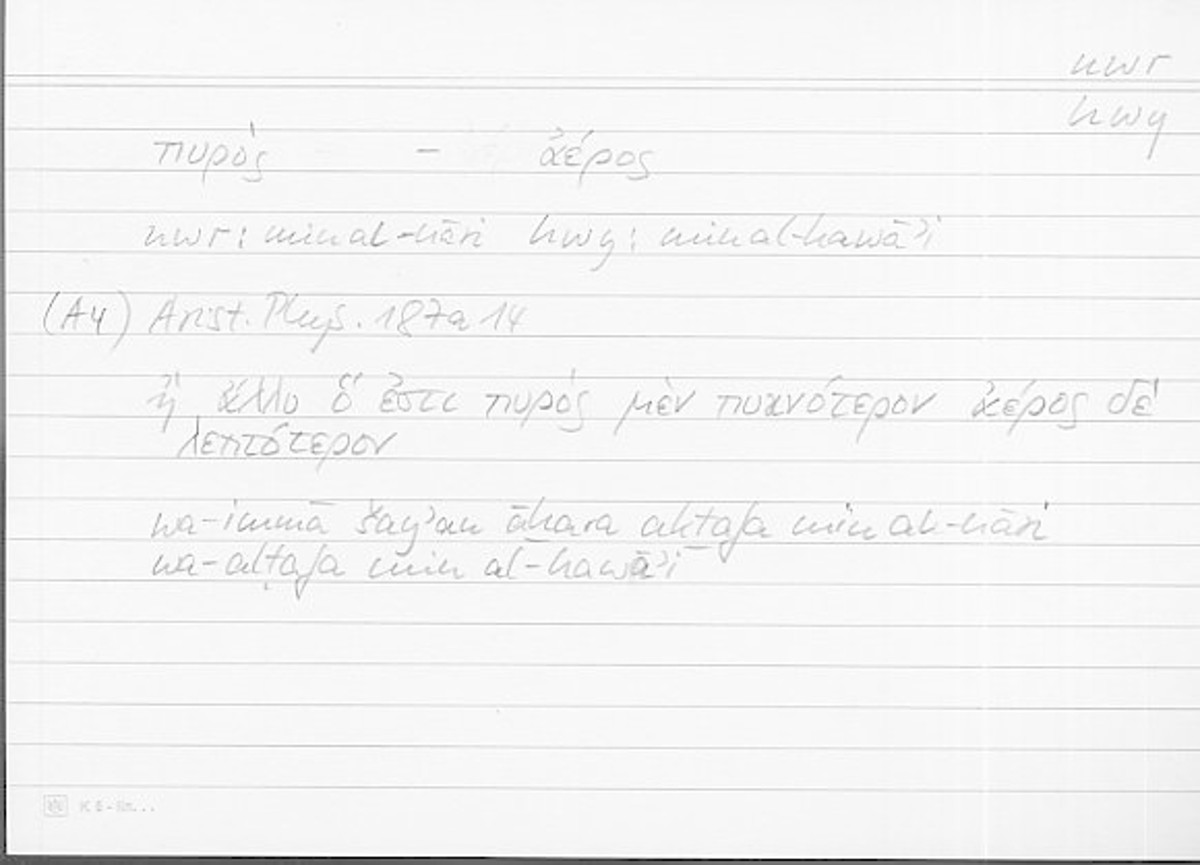 nwr
hwy
πυρὸς – ἀέρος
nwr: min al-nāri hwy: min al-hawāʾi
(A4) Arist. Phys. 187a14
ἢ ἄλλο ὅ ἐστι πυρὸς μὲν πυκνότερον ἀέρος δὲ
λεπτότερον
wa-immā šayʾan āḫara aktafa min al-nāri
wa-alṭafa min al-hawāʾi